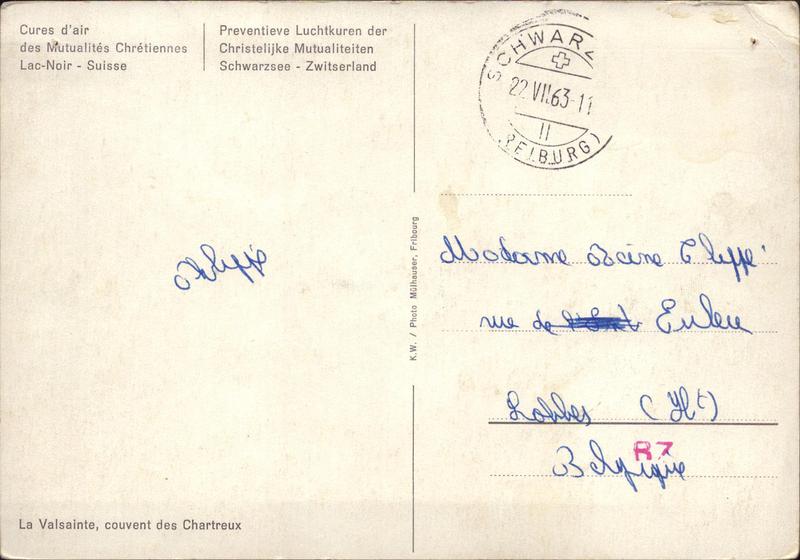 Cures d'air
des Mutualités Chrétiennes
Lac-Noir - Suisse
Preventieve Luchtkuren der
Christelijke Mutualiteiten
Schwarzsee - Zwitserland
SCHWARZ
22.VII.63-11
II
(FREIBURG)
K.W. / Photo Mülhauser, Fribourg
Philippe
Madame
rue de
Lobbes (Ht)
Belgique
La Valsainte, couvent des Chartreux